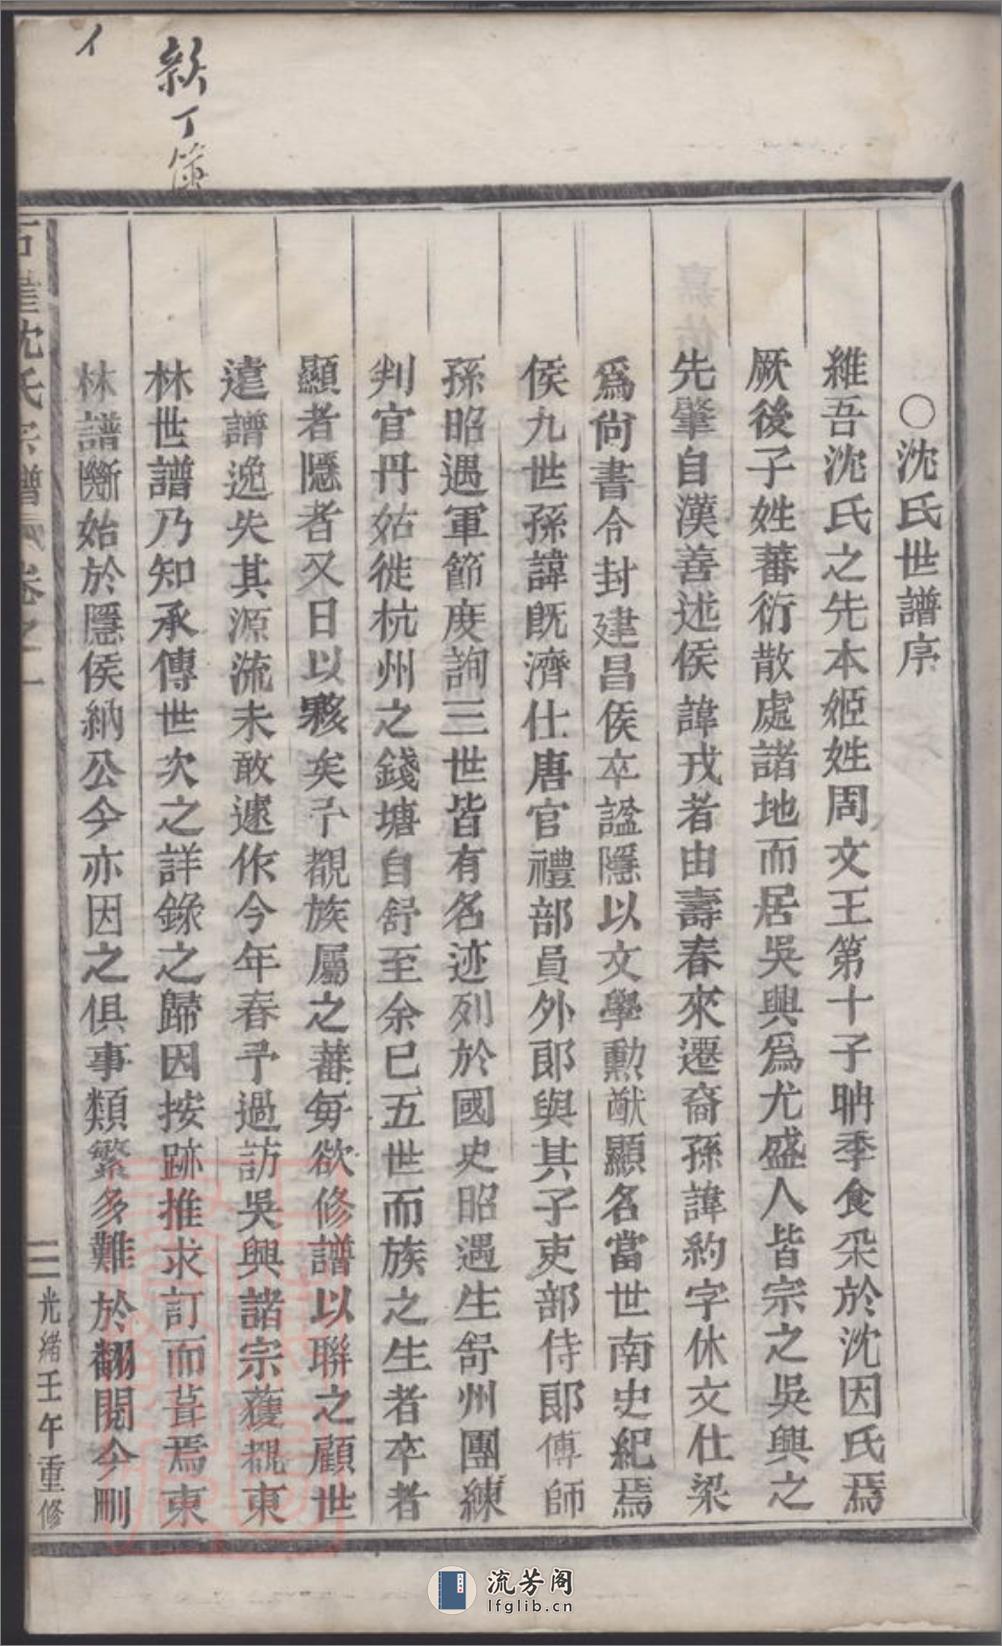 新丁
○沈氏世譜序
維吾沈氏之先本姬姓周文王第十子聃季食采於沈因氏焉
厥後子姓蕃衍散處諸地而居吳興爲尤盛人皆宗之吳興之
先肇自漢善述侯諱戎者由壽春來遷裔孫諱約字休文仕梁
爲尙書令封建昌侯卒諡隱以文學勳猷顯名當世南史紀焉
侯九世孫諱旣濟仕唐官禮部員外郞與其子吏部侍郞傳師
孫昭遇軍節度詢三世皆有名迹列於國史昭遇生舒州團練
判官丹姑徙杭州之錢塘自舒至余已五世而族之生者卒者
顯者隱者又日以夥矣予覩族屬之蕃每欲修譜以聯之顧世
遠譜逸失其源流未敢遽作今年春予過訪吳興諸宗獲覩東
林世譜乃知承傳世次之詳錄之歸因按跡推求訂而葺焉東
林譜斷始於隱侯納公今亦因之俱事類繁多難於翻閱今刪
沈氏宗譜 卷之一
三
光緒壬午重修
流芳阁
lfglib.cn